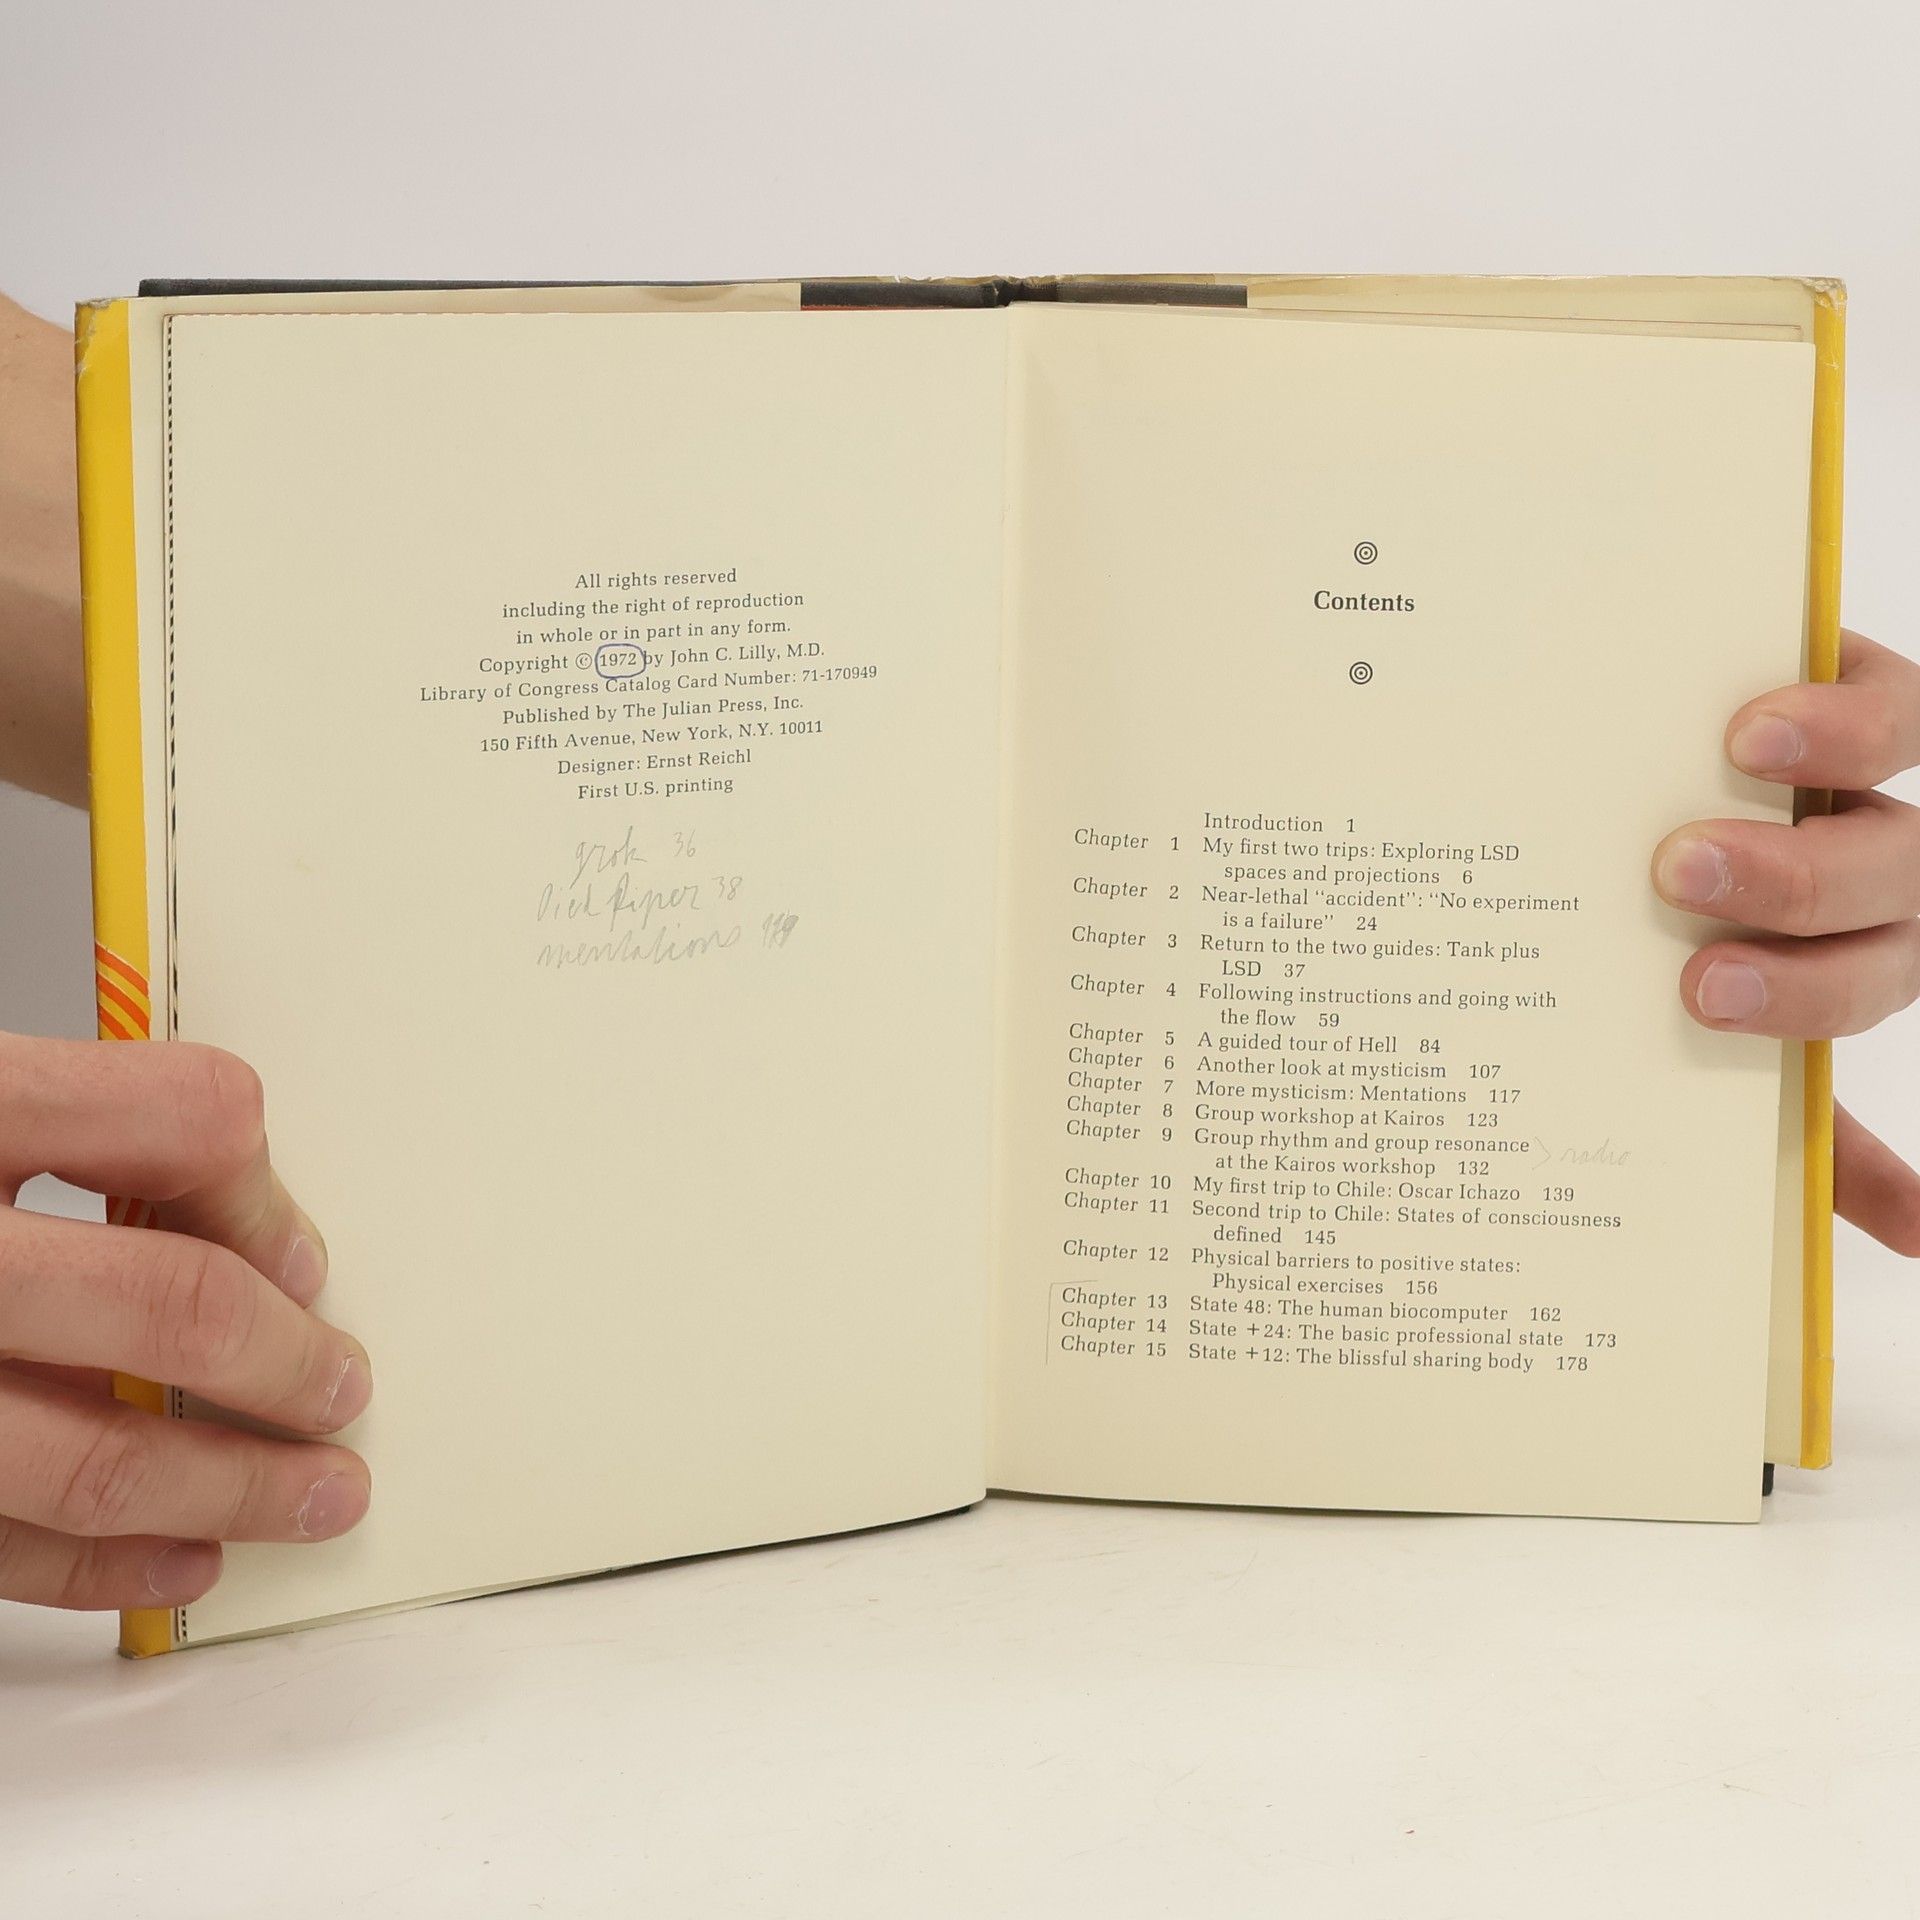 All rights reserved
including the right of reproduction
in whole or in part in any form.
Copyright © 1972 by John C. Lilly, M.D.
Library of Congress Catalog Card Number: 71-170949
Published by The Julian Press, Inc.
150 Fifth Avenue, New York, N.Y. 10011
Designer: Ernst Reichl
First U.S. printing
grok 36
Pied Piper 38
mentations
Contents
Introduction 1
Chapter 1 My first two trips: Exploring LSD
spaces and projections 6
Chapter 2 Near-lethal “accident”: “No experiment
is a failure” 24
Chapter 3 Return to the two guides: Tank plus
LSD 37
Chapter 4 Following instructions and going with
the flow 59
Chapter 5 A guided tour of Hell 84
Chapter 6 Another look at mysticism 107
Chapter 7 More mysticism: Mentations 117
Chapter 8 Group workshop at Kairos 123
Chapter 9 Group rhythm and group resonance
at the Kairos workshop 132
radio
Chapter 10 My first trip to Chile: Oscar Ichazo 139
Chapter 11 Second trip to Chile: States of consciousness
defined 145
Chapter 12 Physical barriers to positive states:
Physical exercises 156
Chapter 13 State 48: The human biocomputer 162
Chapter 14 State +24: The basic professional state 173
Chapter 15 State +12: The blissful sharing body 178